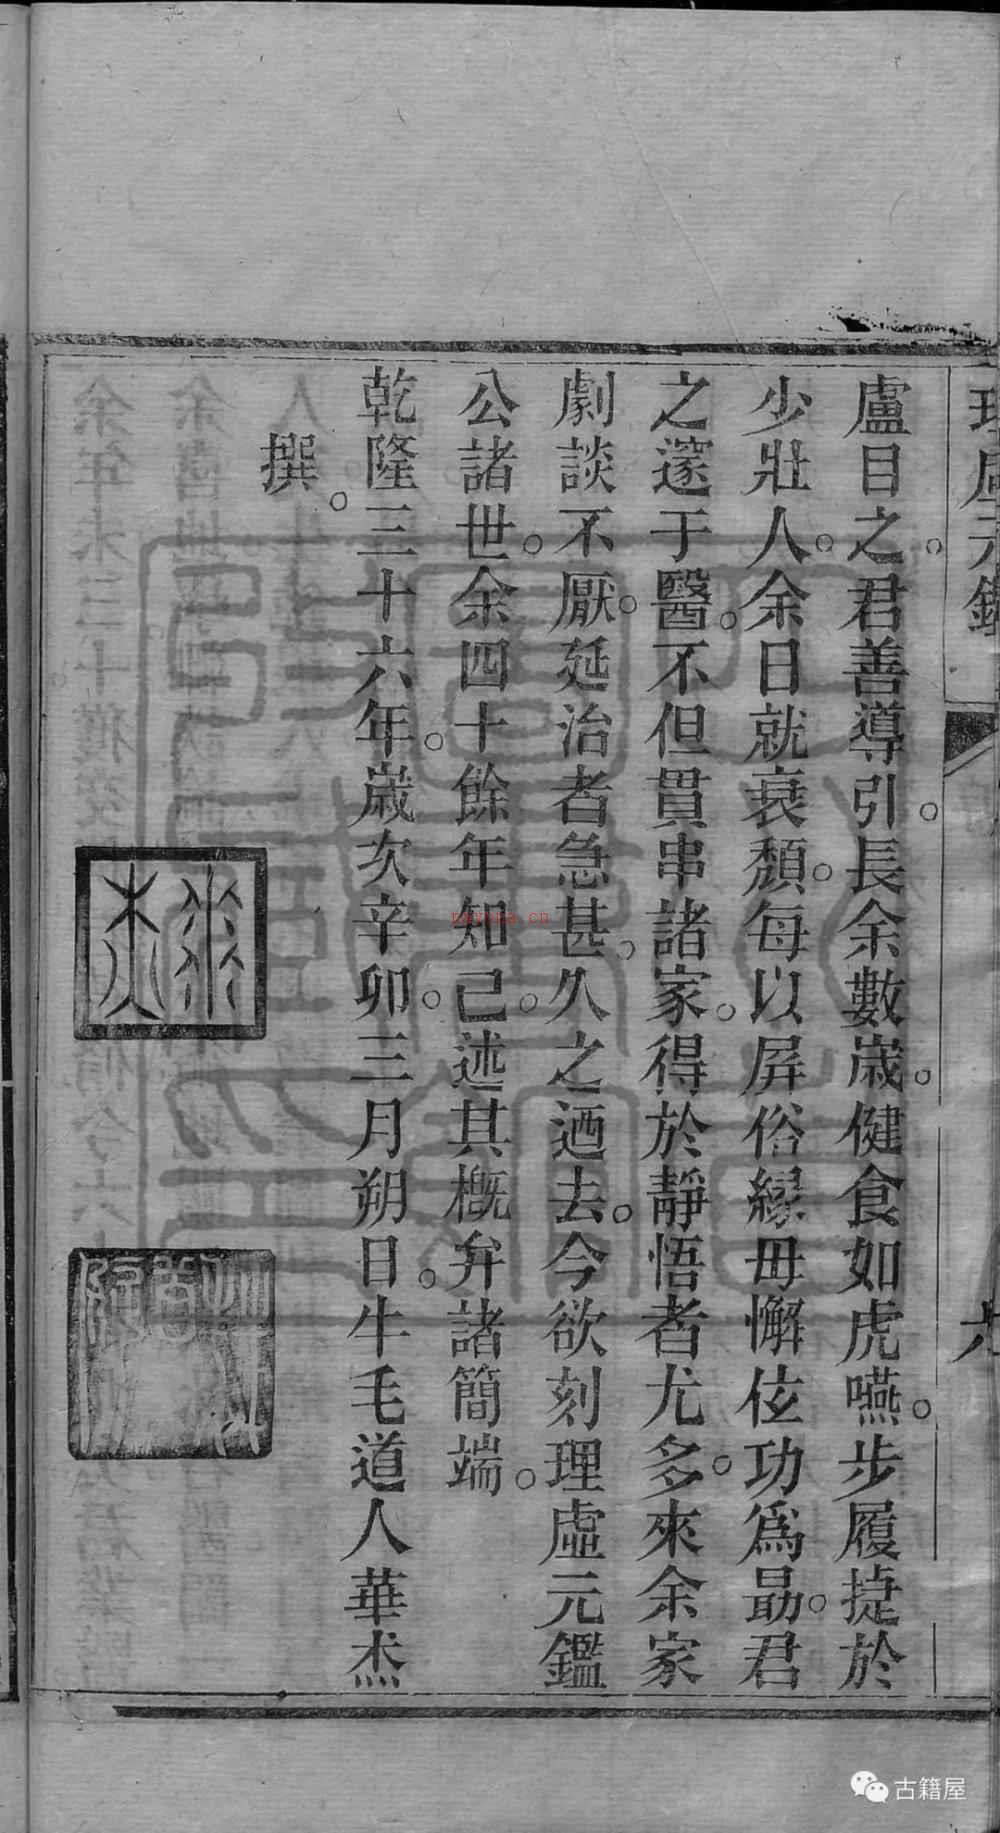 盧目之。君善導引。長余數歲。健食如虎嚥。步履捷於
少壯人。余日就衰頹。每以屏俗緣毋懈伭功爲勗。君
之邃于醫。不但貫串諸家。得於靜悟者尤多。來余家
劇談不厭。延治者急甚。久之迺去。今欲刻理虛元鑑
公諸世。余四十餘年知己。述其概弁諸簡端。
乾隆三十六年。歲次辛卯。三月朔日。牛毛道人華杰
撰。
理虛元鑑
古籍屋